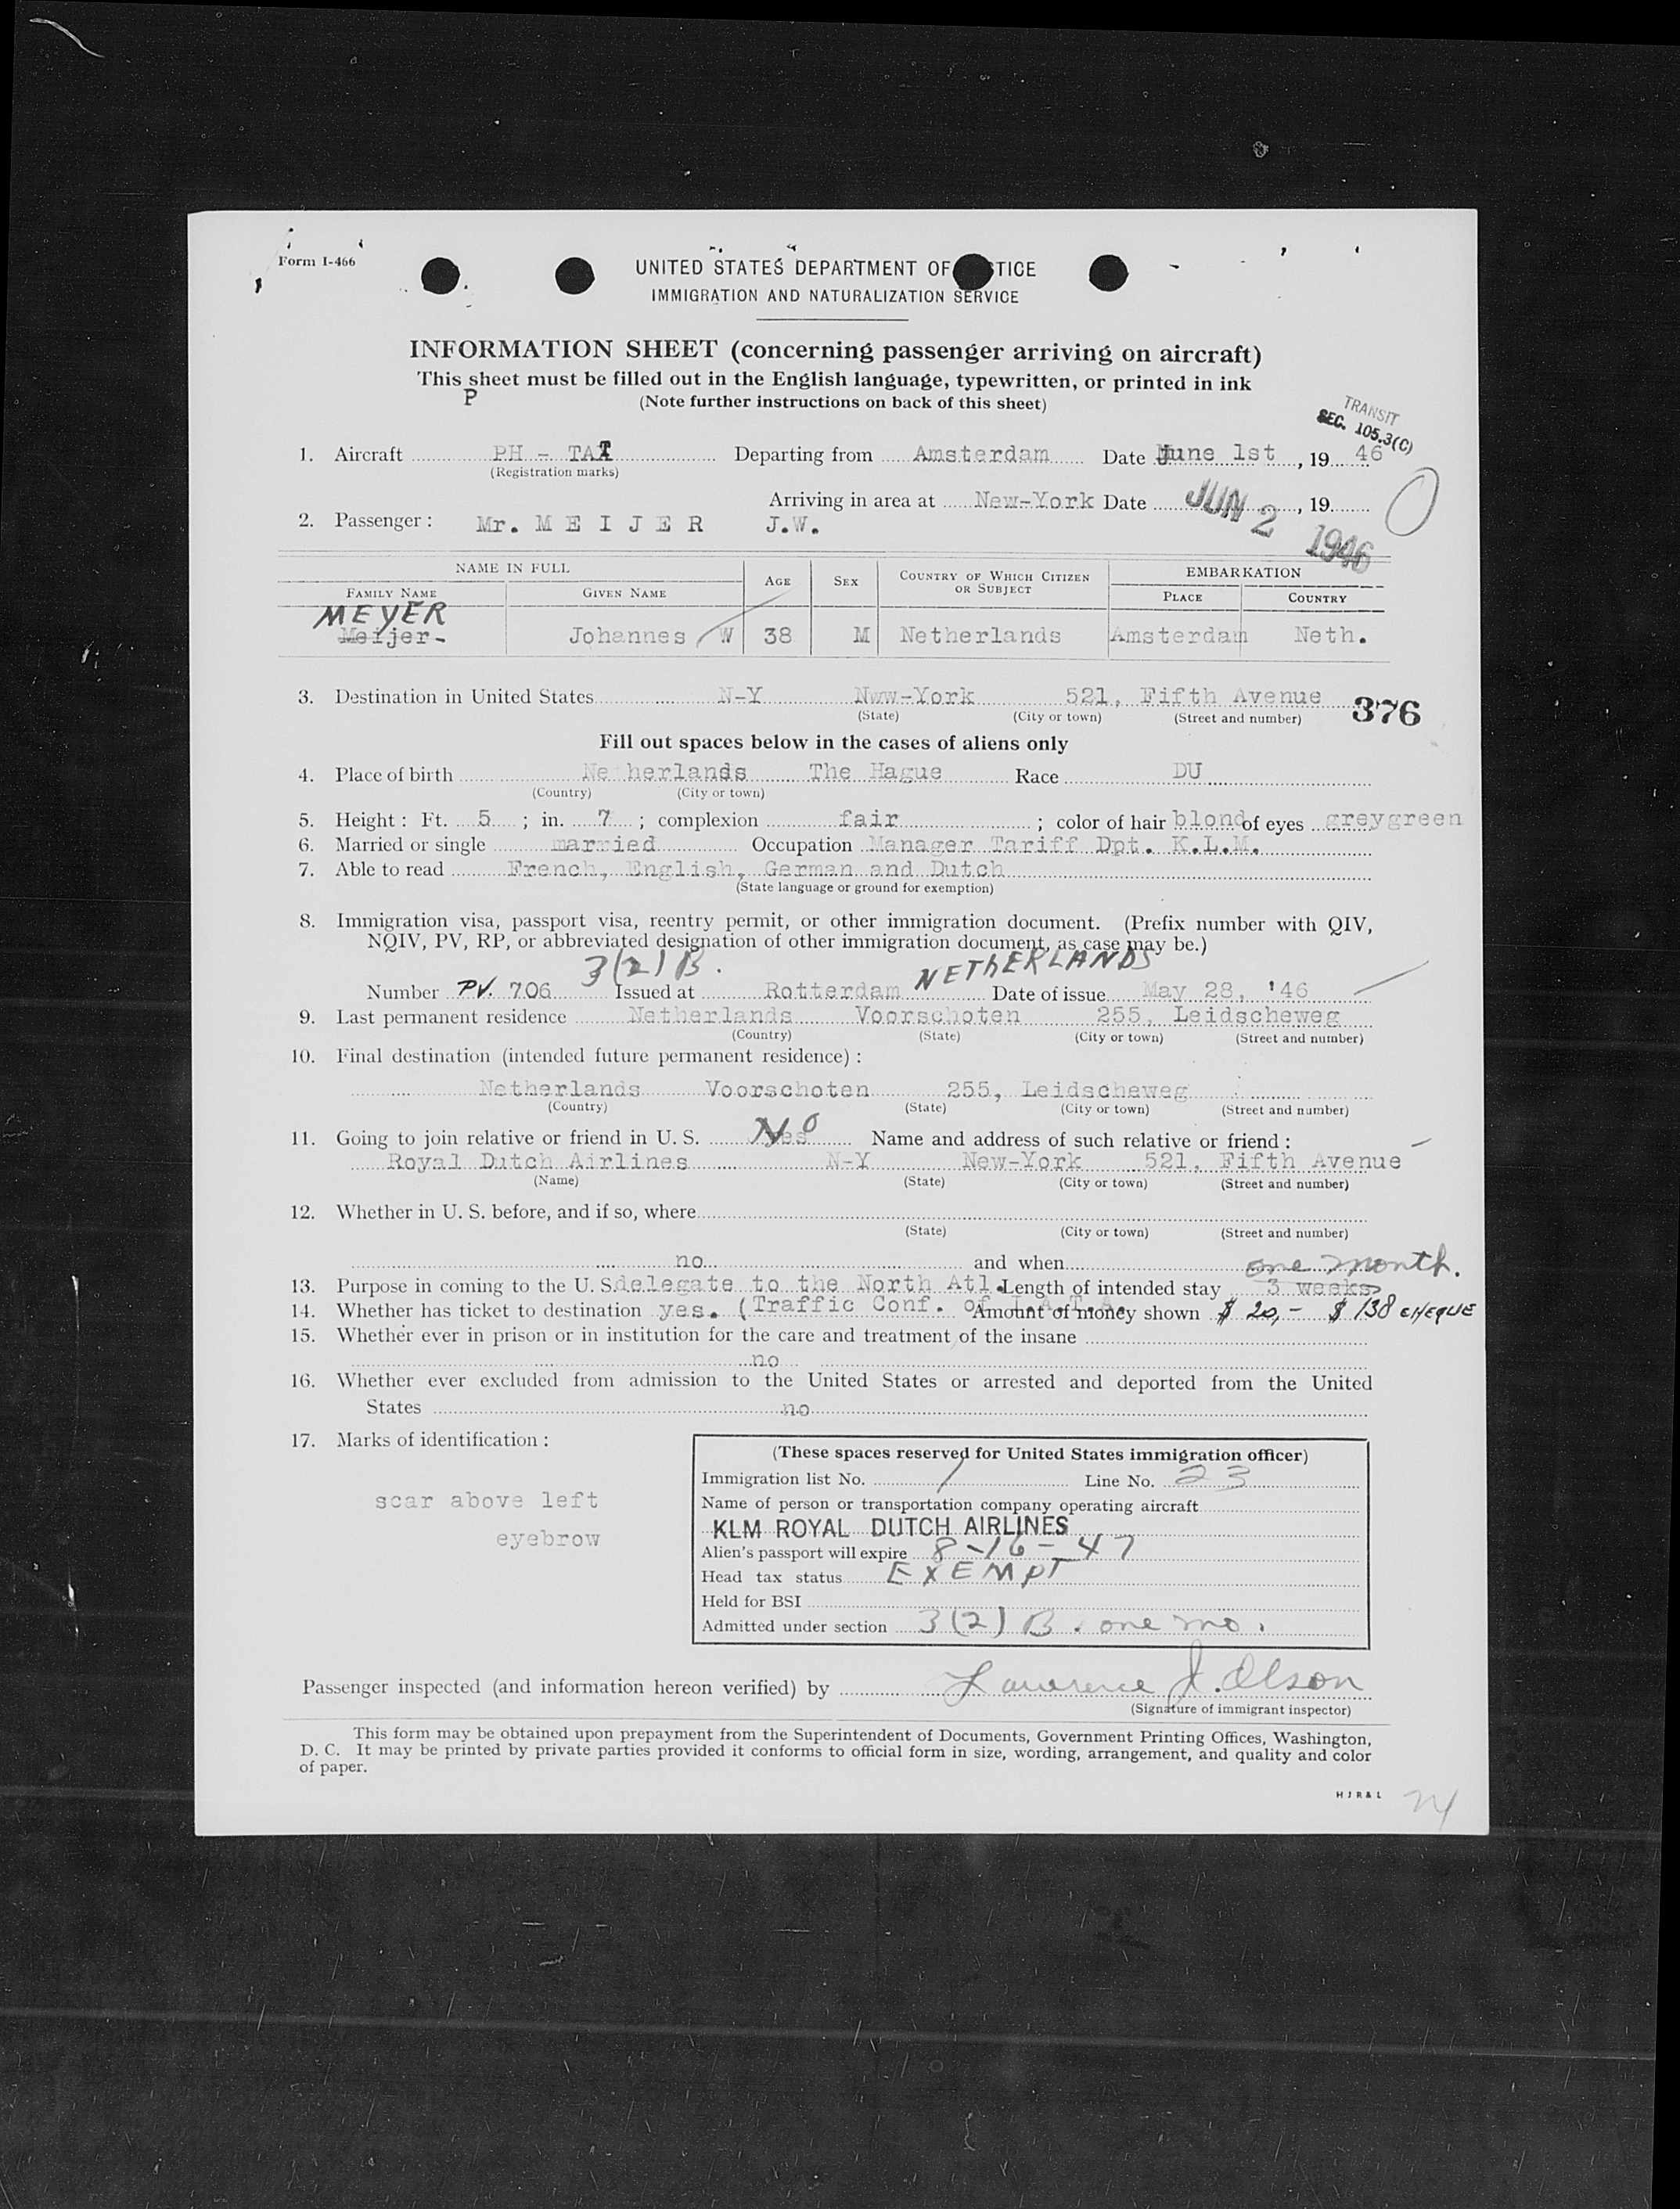 Form I-466
UNITED STATES DEPARTMENT OF TICE
IMMIGRATION AND NATURALIZATION SERVICE
INFORMATION SHEET (concerning passenger arriving on aircraft)
This sheet must be filled out in the English language, typewritten, or printed in ink
P
(Note further instructions on back of this sheet)
TRANSIT
SEC. 105.3(C)
1. Aircraft PH - TAT Departing from Amsterdam Date June 1st, 19 46
(Registration marks)
Arriving in area at New-York Date JUN 2 1946, 19
2. Passenger: Mr. M E I J E R J.W.
NAME IN FULL AGE SEX COUNTRY OF WHICH CITIZEN OR SUBJECT EMBARKATION
FAMILY NAME GIVEN NAME PLACE COUNTRY
MEYER
Meijer- Johannes W 38 M Netherlands Amsterdam Neth.
3. Destination in United States N-Y Nww-York 521, Fifth Avenue 376
(State) (City or town) (Street and number)
Fill out spaces below in the cases of aliens only
4. Place of birth Netherlands The Hague Race DU
(Country) (City or town)
5. Height: Ft. 5 ; in. 7 ; complexion fair ; color of hair blond of eyes greygreen
6. Married or single married Occupation Manager Tariff Dpt. K.L.M.
7. Able to read French, English, German and Dutch
(State language or ground for exemption)
8. Immigration visa, passport visa, reentry permit, or other immigration document. (Prefix number with QIV,
NQIV, PV, RP, or abbreviated designation of other immigration document, as case may be.)
3(2) B. NETHERLANDS
Number PV. 706 Issued at Rotterdam Date of issue May 28, '46
9. Last permanent residence Netherlands Voorschoten 255, Leidscheweg
(Country) (State) (City or town) (Street and number)
10. Final destination (intended future permanent residence):
Netherlands Voorschoten 255, Leidscheweg
(Country) (State) (City or town) (Street and number)
11. Going to join relative or friend in U. S. Yes No Name and address of such relative or friend:
Royal Dutch Airlines N-Y New-York 521, Fifth Avenue
(Name) (State) (City or town) (Street and number)
12. Whether in U. S. before, and if so, where
(State) (City or town) (Street and number)
no and when one month.
13. Purpose in coming to the U. S. delegate to the North Atl. Length of intended stay 3 weeks
14. Whether has ticket to destination yes. (Traffic Conf. of I.A.T.A. Amount of money shown $ 20,- $ 138 CHEQUE
15. Whether ever in prison or in institution for the care and treatment of the insane
no
16. Whether ever excluded from admission to the United States or arrested and deported from the United
States no
17. Marks of identification:
scar above left
eyebrow
(These spaces reserved for United States immigration officer)
Immigration list No. 1 Line No. 23
Name of person or transportation company operating aircraft
KLM ROYAL DUTCH AIRLINES
Alien's passport will expire 8-16-47
Head tax status EXEMPT
Held for BSI
Admitted under section 3(2) B. one mo.
Passenger inspected (and information hereon verified) by Lawrence J. Olson
(Signature of immigrant inspector)
This form may be obtained upon prepayment from the Superintendent of Documents, Government Printing Offices, Washington,
D. C. It may be printed by private parties provided it conforms to official form in size, wording, arrangement, and quality and color
of paper.
H J R & L